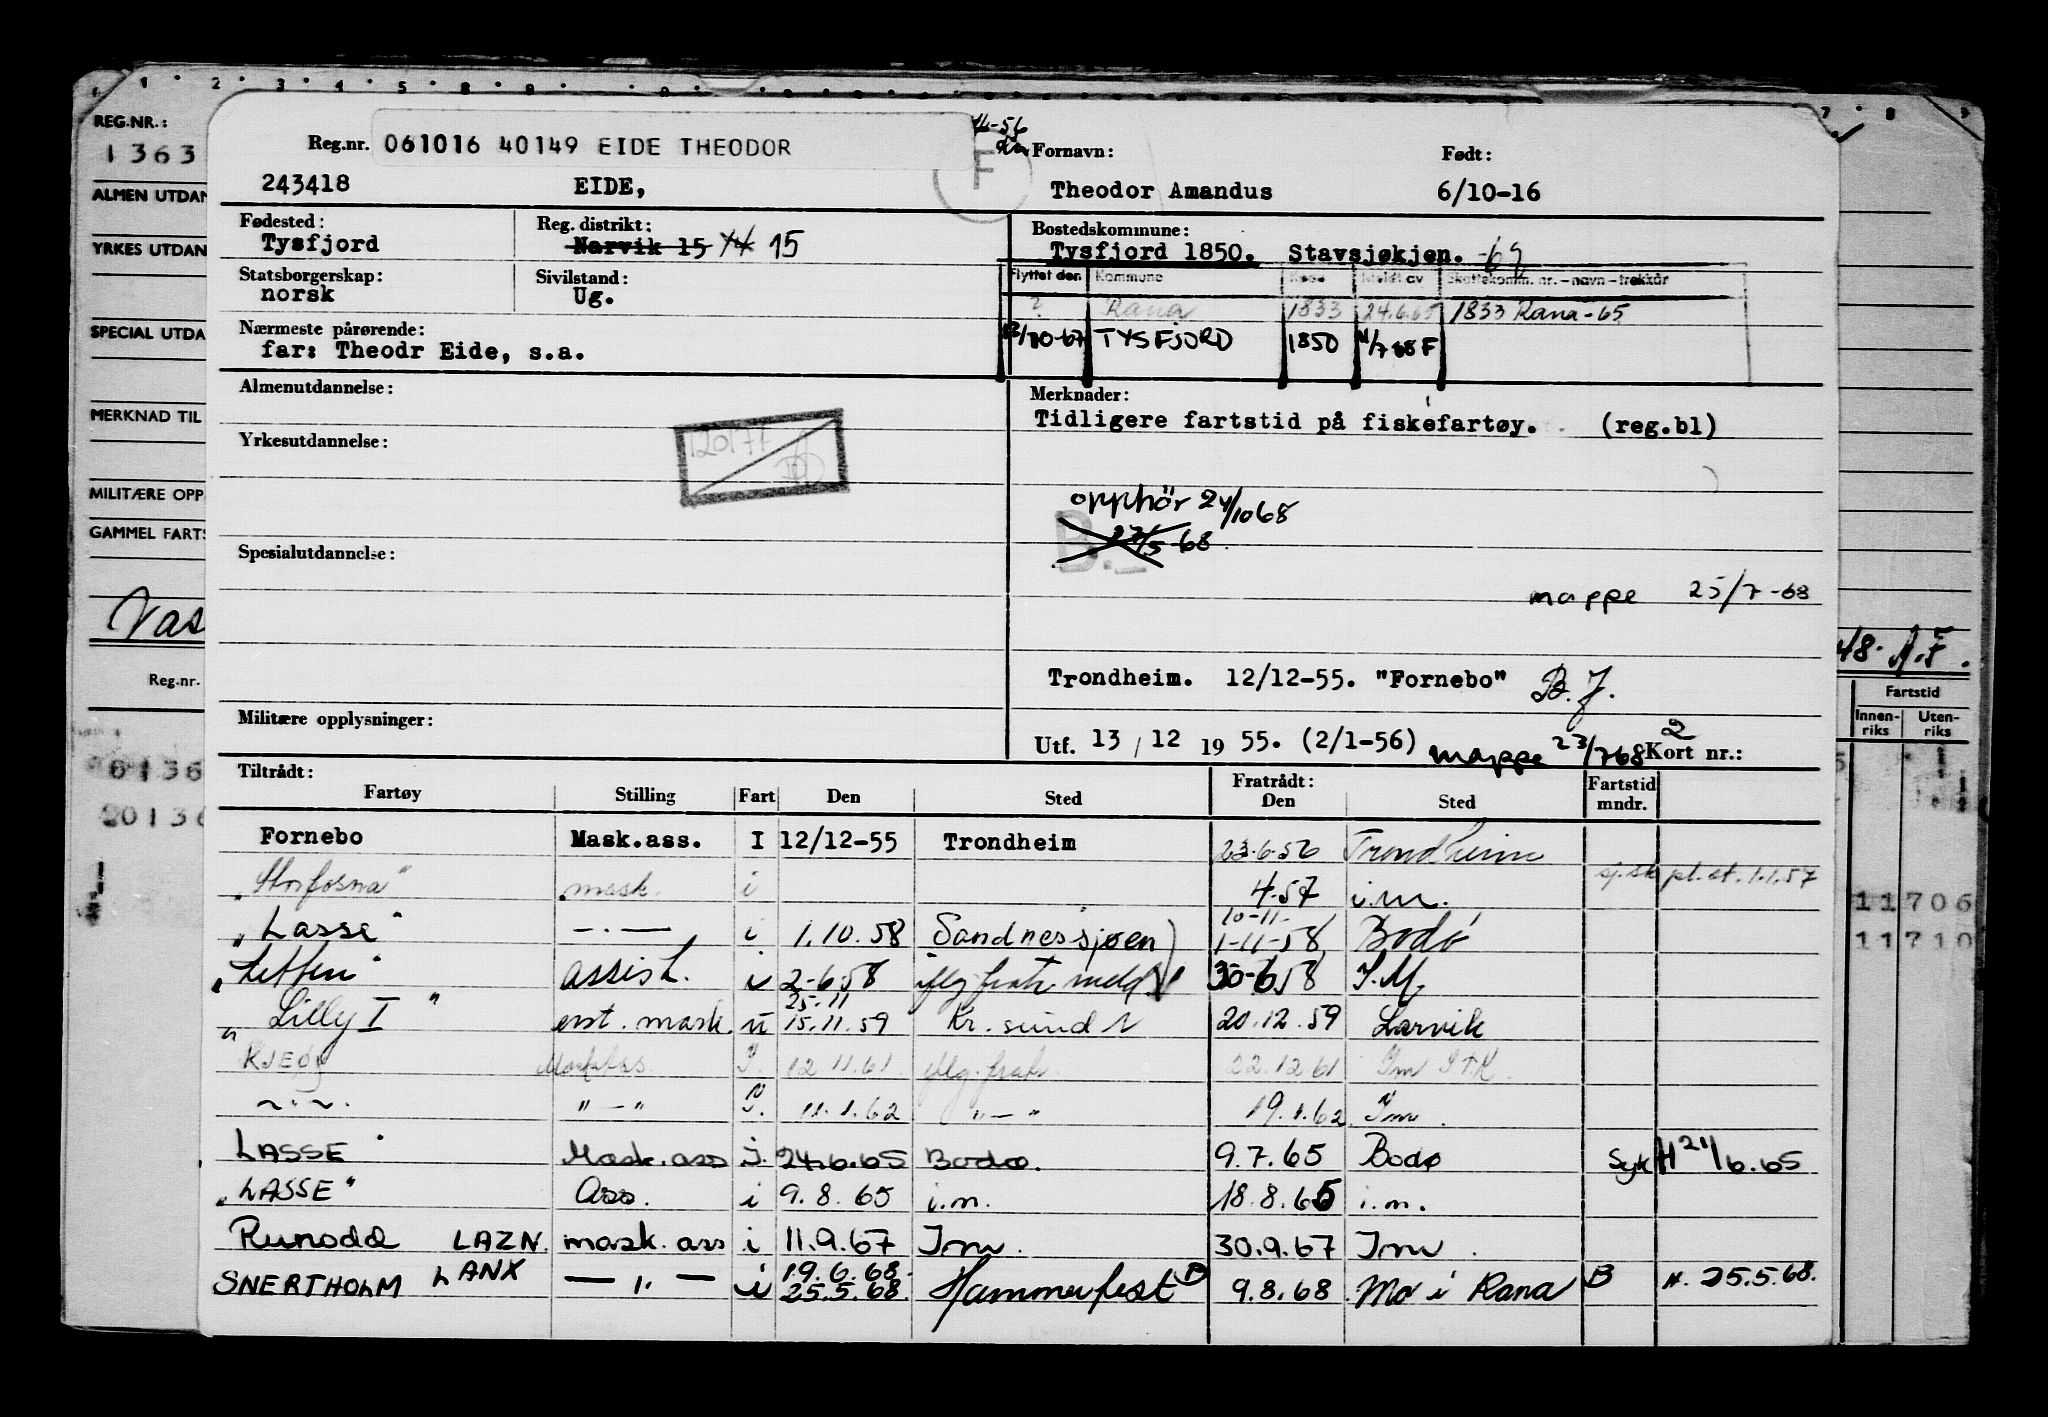 REG.NR.:
1363
ALMEN UTDAN
YRKES UTDAN
SPECIAL UTDA
MERKNAD TIL
MILITÆRE OPP
GAMMEL FARTS
Vas
Reg.nr.
Reg.nr. 061016 40149 EIDE THEODOR
F
243418 EIDE,
Fornavn: Født:
Theodor Amandus 6/10-16
Fødested: Reg. distrikt:
Tysfjord Narvik 15 15
Bostedskommune:
Tysfjord 1850. Stavsjøkjen. -69
Statsborgerskap: Sivilstand:
norsk Ug.
Flyttet den Kommune Kode Meldt av Skattekomm. nr. - navn - trekkår
? Rana 1833 24.6.65 1833 Rana-65
Nærmeste pårørende:
far: Theodr Eide, s.a.
TYSFJORD 1850
Almenutdannelse:
Merknader:
Tidligere fartstid på fiskefartøy. (reg.bl)
Yrkesutdannelse:
120177
opphör 24/10 68
B.
23/5-68
Spesialutdannelse:
mappe 25/7-68
Trondheim. 12/12-55. "Fornebo" B.J.
Militære opplysninger:
Utf. 13 / 12 19 55. (2/1-56) mappe 23/7 68 Kort nr.: 2
Tiltrådt: Fratrådt: Fartstid
Fartøy Stilling Fart Den Sted Den Sted mndr.
Fornebo Mask.ass. I 12/12-55 Trondheim 23.6.56 Trondheim
"Storfosna" mask. i 4.57 i.m. pl.st. 1.1.57
"Lasse" -.- i 1.10.58 Sandnessjøen 10-11- 1-11-58 Bodø
assist. i 2-6.58 iflg fratr meld. 30-6.58 I.M
"Lilly I" erst. mask. u 25.11 15.11.59 Kr. sund N 20.12.59 Larvik
KJEØY Maskass. I. 12.11.61 iflg. fratr. 22.12.61 Im
~"~. "-" I. 11.1.62 "-" 19.1.62 Im.
LASSE Mask.ass I. 24.6.65 Bodø. 9.7.65 Bodø Syk H 21/6.65
"LASSE" Ass. i 9.8.65 i.m. 18.8.65 i.m.
Runodd LAZN. mask.ass i 11.9.67 Im. 30.9.67 Im.
SNERTHOLM LANX -"- i 19.6.68. 25.5.68. Hammerfest B 9.8.68 Mo i Rana B H. 25.5.68.
48. A.F.
Fartstid
Innen-riks Uten-riks
11706
11710